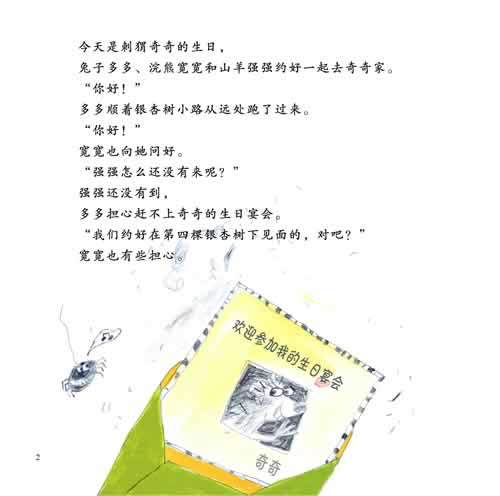 今天是刺猬奇奇的生日，
兔子多多、浣熊宽宽和山羊强强约好一起去奇奇家。
“你好！”
多多顺着银杏树小路从远处跑了过来。
“你好！”
宽宽也向她问好。
“强强怎么还没有来呢？”
强强还没有到，
多多担心赶不上奇奇的生日宴会。
“我们约好在第四棵银杏树下见面的，对吧？”
宽宽也有些担心。
欢迎参加我的生日宴会
奇奇
2